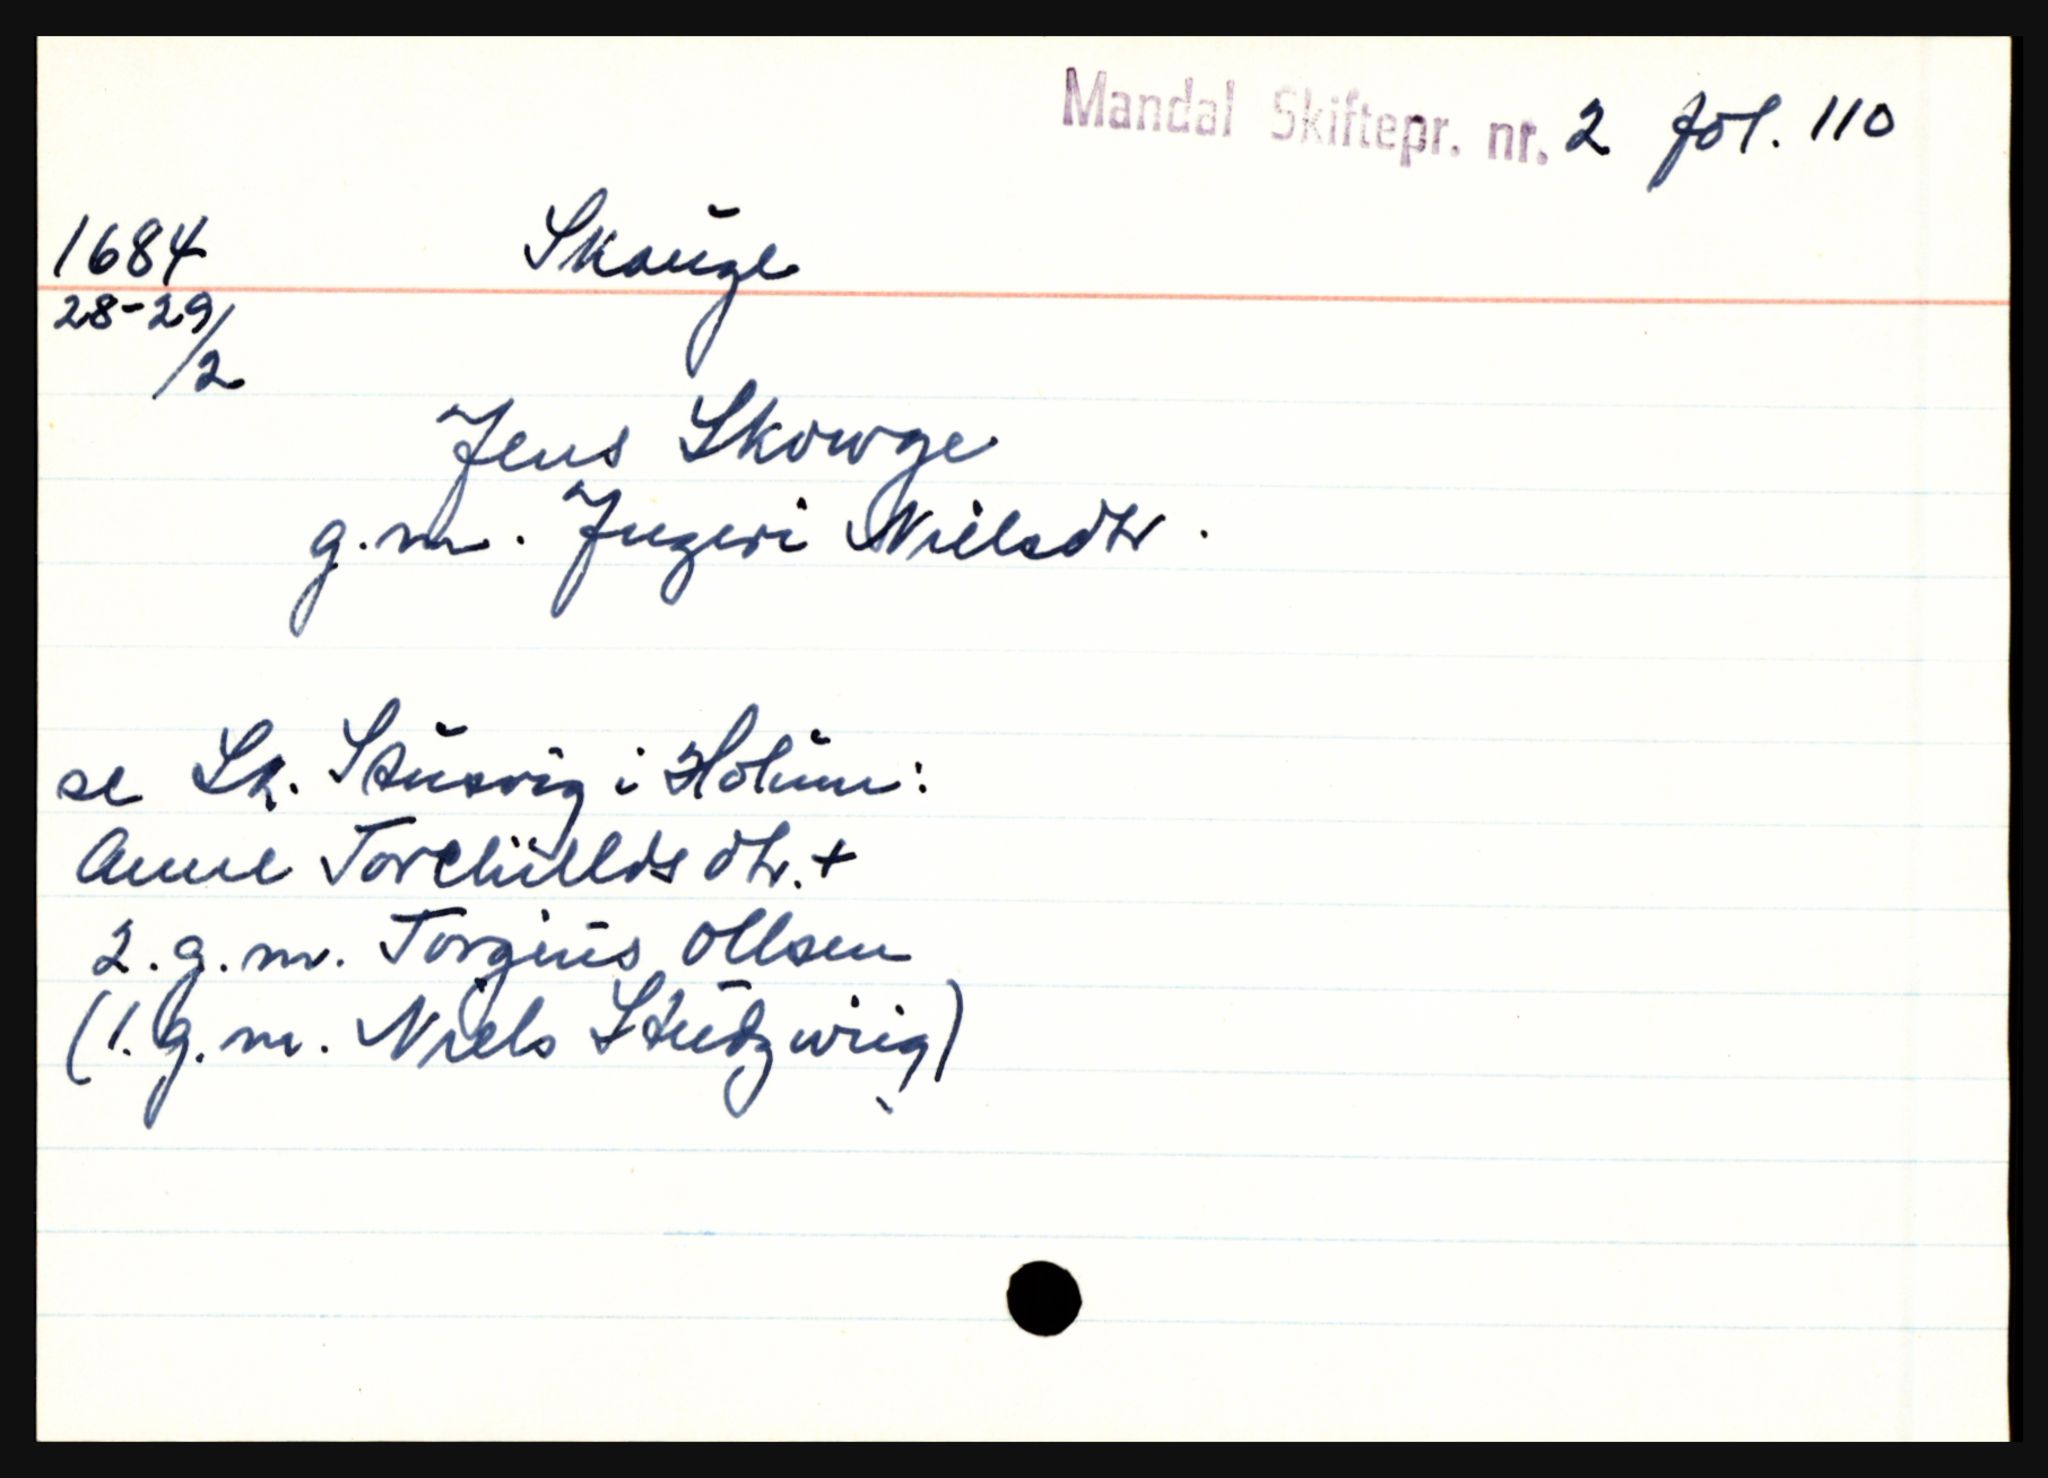 Mandal Skiftepr. nr. 2 fol. 110
1684 Skauge
28-29/2
Jens Skowge
g.m. Ingeri Nielsdtr.
se Sk. Stusvig i Holum:
Anne Torchilldsdtr. +
2. g.m. Torgius Ollsen
(1. g.m. Niels Studzwiig)